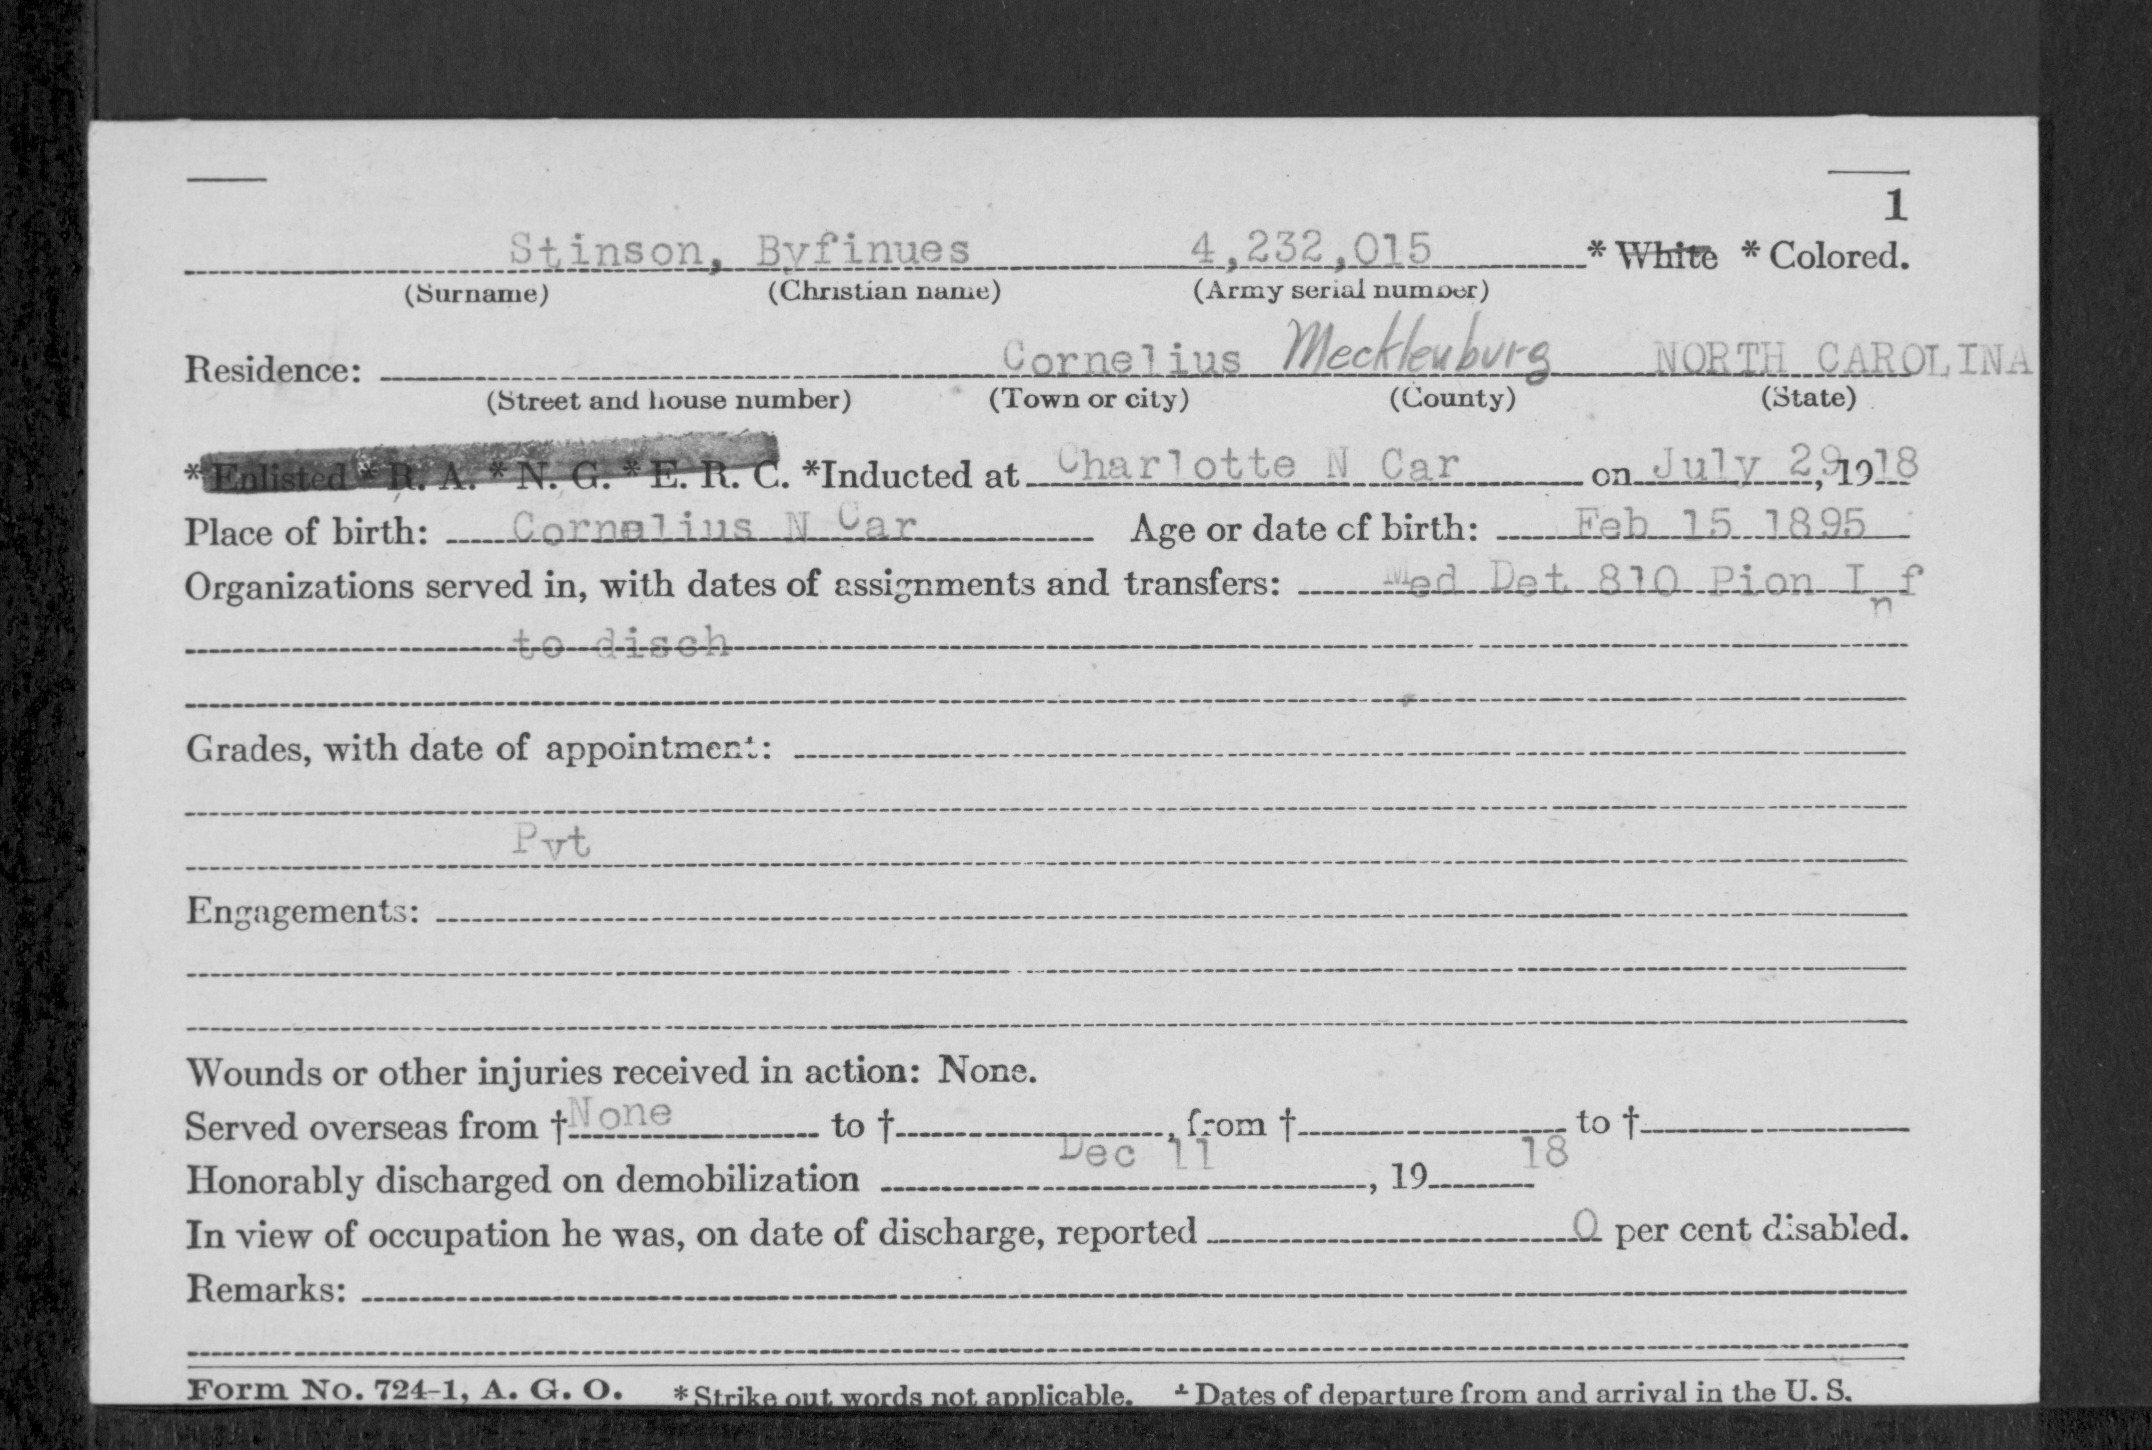 1
Stinson, Byfinues 4,232,015 * White * Colored.
(Surname) (Christian name) (Army serial number)
Residence: Cornelius Mecklenburg NORTH CAROLINA
(Street and house number) (Town or city) (County) (State)
* Enlisted * R. A. * N. G. * E. R. C. *Inducted at Charlotte N Car on July 29, 1918
Place of birth: Cornelius N Car Age or date of birth: Feb 15 1895
Organizations served in, with dates of assignments and transfers: Med Det 810 Pion Inf
to disch
Grades, with date of appointment:
Pvt
Engagements:
Wounds or other injuries received in action: None.
Served overseas from † None to †, from † to †
Honorably discharged on demobilization Dec 11, 19 18
In view of occupation he was, on date of discharge, reported 0 per cent disabled.
Remarks:
Form No. 724-1, A. G. O. * Strike out words not applicable. † Dates of departure from and arrival in the U. S.